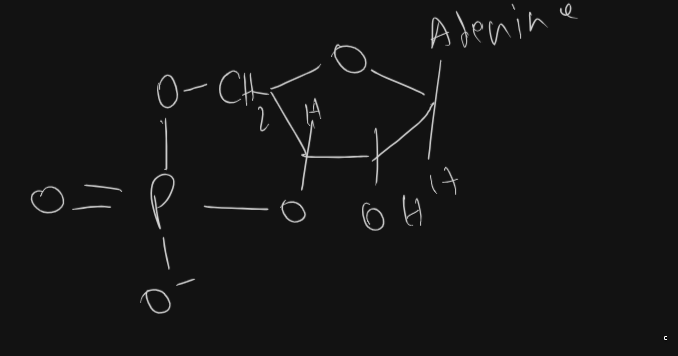 Adenine
O
O-CH2
H
H
O=P-O
OH
O-
c